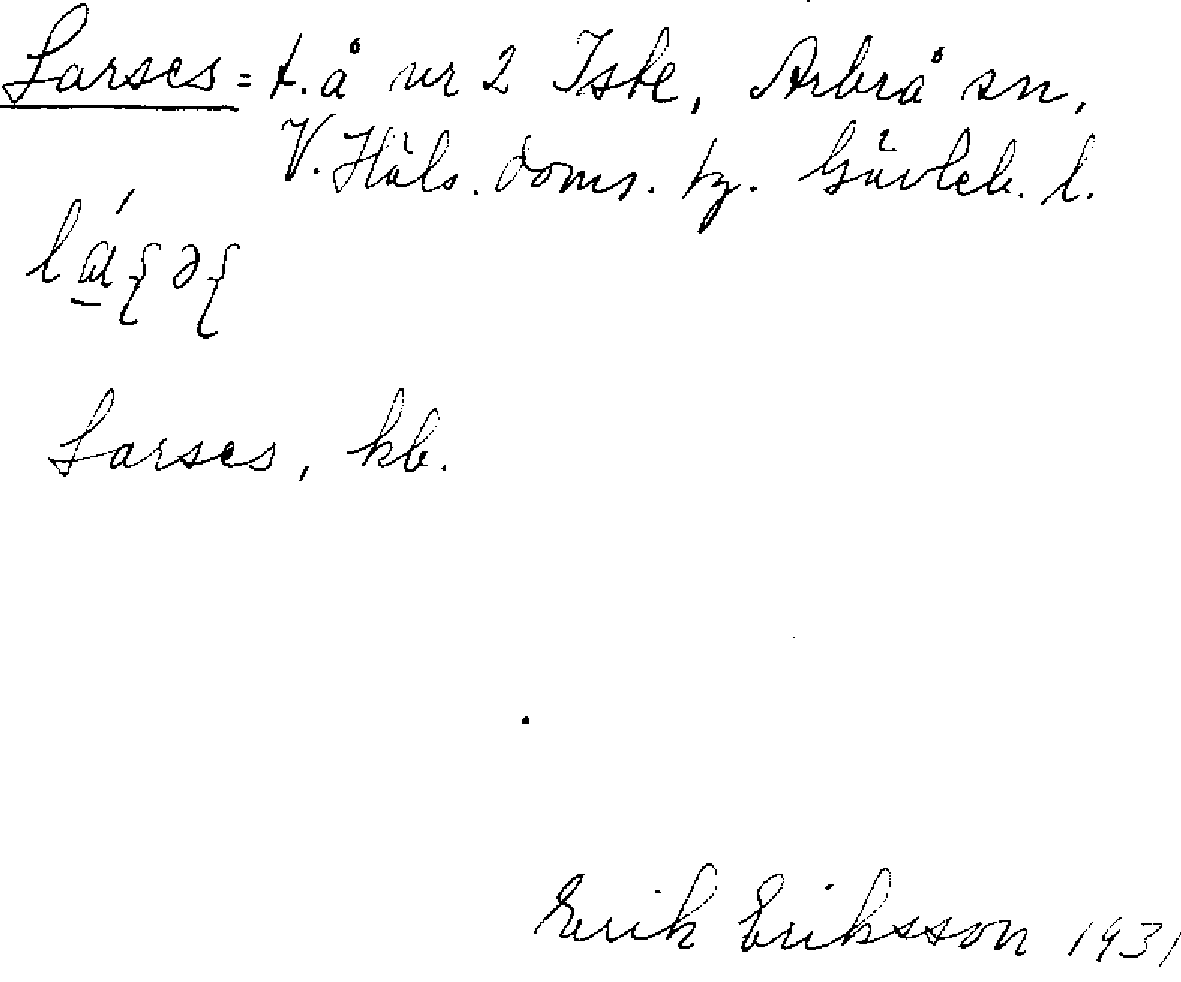 Larses = t. å nr 2 Iste, Arbrå sn,
V. Häls. doms. tg. Gävleb. l.
Larses, kb.
Erik Eriksson 1931